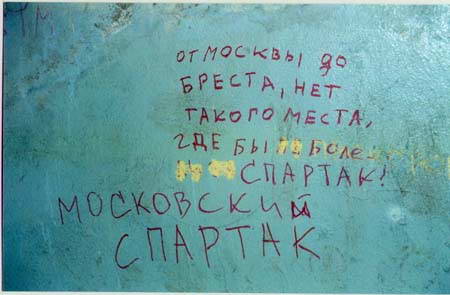 ОТ МОСКВЫ ДО
БРЕСТА, НЕТ
ТАКОГО МЕСТА,
ГДЕ БЫ БОЛЕ
СПАРТАК!
МОСКОВСКИЙ
СПАРТАК